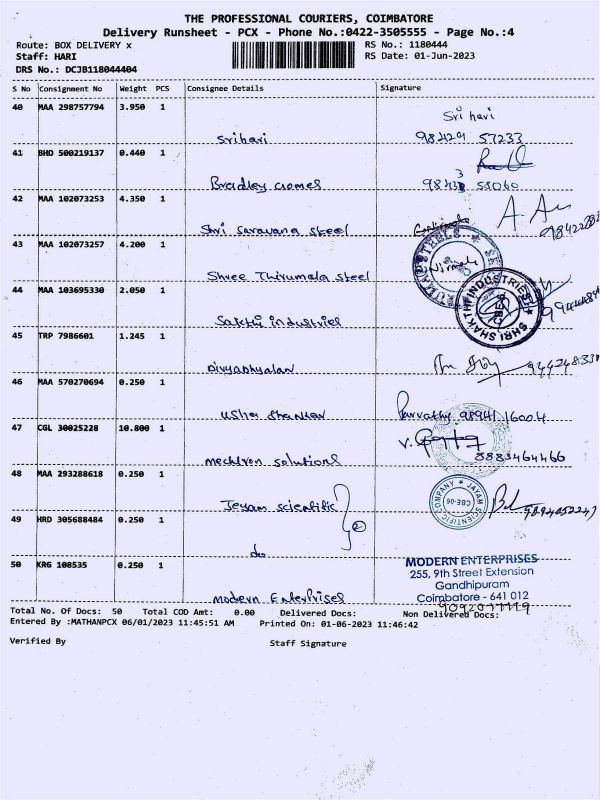 THE PROFESSIONAL COURIERS, COIMBATORE
Delivery Runsheet - PCX - Phone No.:0422-3505555 - Page No.:4
Route: BOX DELIVERY x RS No.: 1180444
Staff: HARI RS Date: 01-Jun-2023
DRS No.: DCJB118044404
S No Consignment No Weight PCS Consignee Details Signature
40 MAA 298757794 3.950 1
Sri hari
Srihari 98429 57233
41 BHD 500219137 0.440 1
Bradley cromes
42 MAA 102073253 4.350 1
Shri Saravana steel
43 MAA 102073257 4.200 1
Nirmala
Shree Thirumala steel
44 MAA 103695330 2.050 1
SHRI SHAKTHI INDUSTRIES CBE-6
Sakthi industries
45 TRP 7986601 1.245 1
Divyadhyalan
46 MAA 570270694 0.250 1
Usha Shankar Parvathy 98941 16004
47 CGL 30025228 10.800 1
mechtron solutions 8883464466
48 MAA 293288618 0.250 1
JAYAM SCIENTIFIC COMPANY CBE-06
Jeyam scientific
49 HRD 305688484 0.250 1
2
do
50 KRG 108535 0.250 1
MODERN ENTERPRISES
255, 9th Street Extension
Gandhipuram
Coimbatore - 641 012
modern Enterprises
Total No. Of Docs: 50 Total COD Amt: 0.00 Delivered Docs: Non Delivered Docs:
Entered By :MATHANPCX 06/01/2023 11:45:51 AM Printed On: 01-06-2023 11:46:42
Verified By Staff Signature